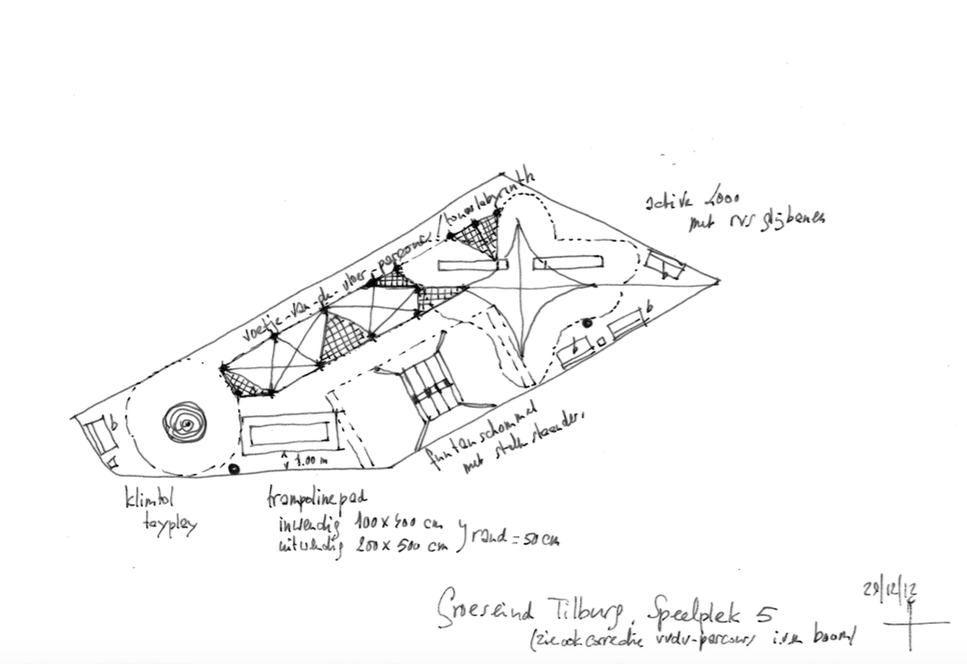 voetje-van-de-vloer-parcours/touwlabyrinth
active 2000
met rvs glijbanen
b
b
b
funtan schommel
met stalen staander.
1.00 m
klimtol
tayplay
trampolinepad
inwendig 100 x 400 cm
uitwendig 200 x 500 cm } rand = 50 cm
29/12/12
Groeseind Tilburg, Speelplek 5
(zie ook correctie vvdv-parcours i.v.m boom)